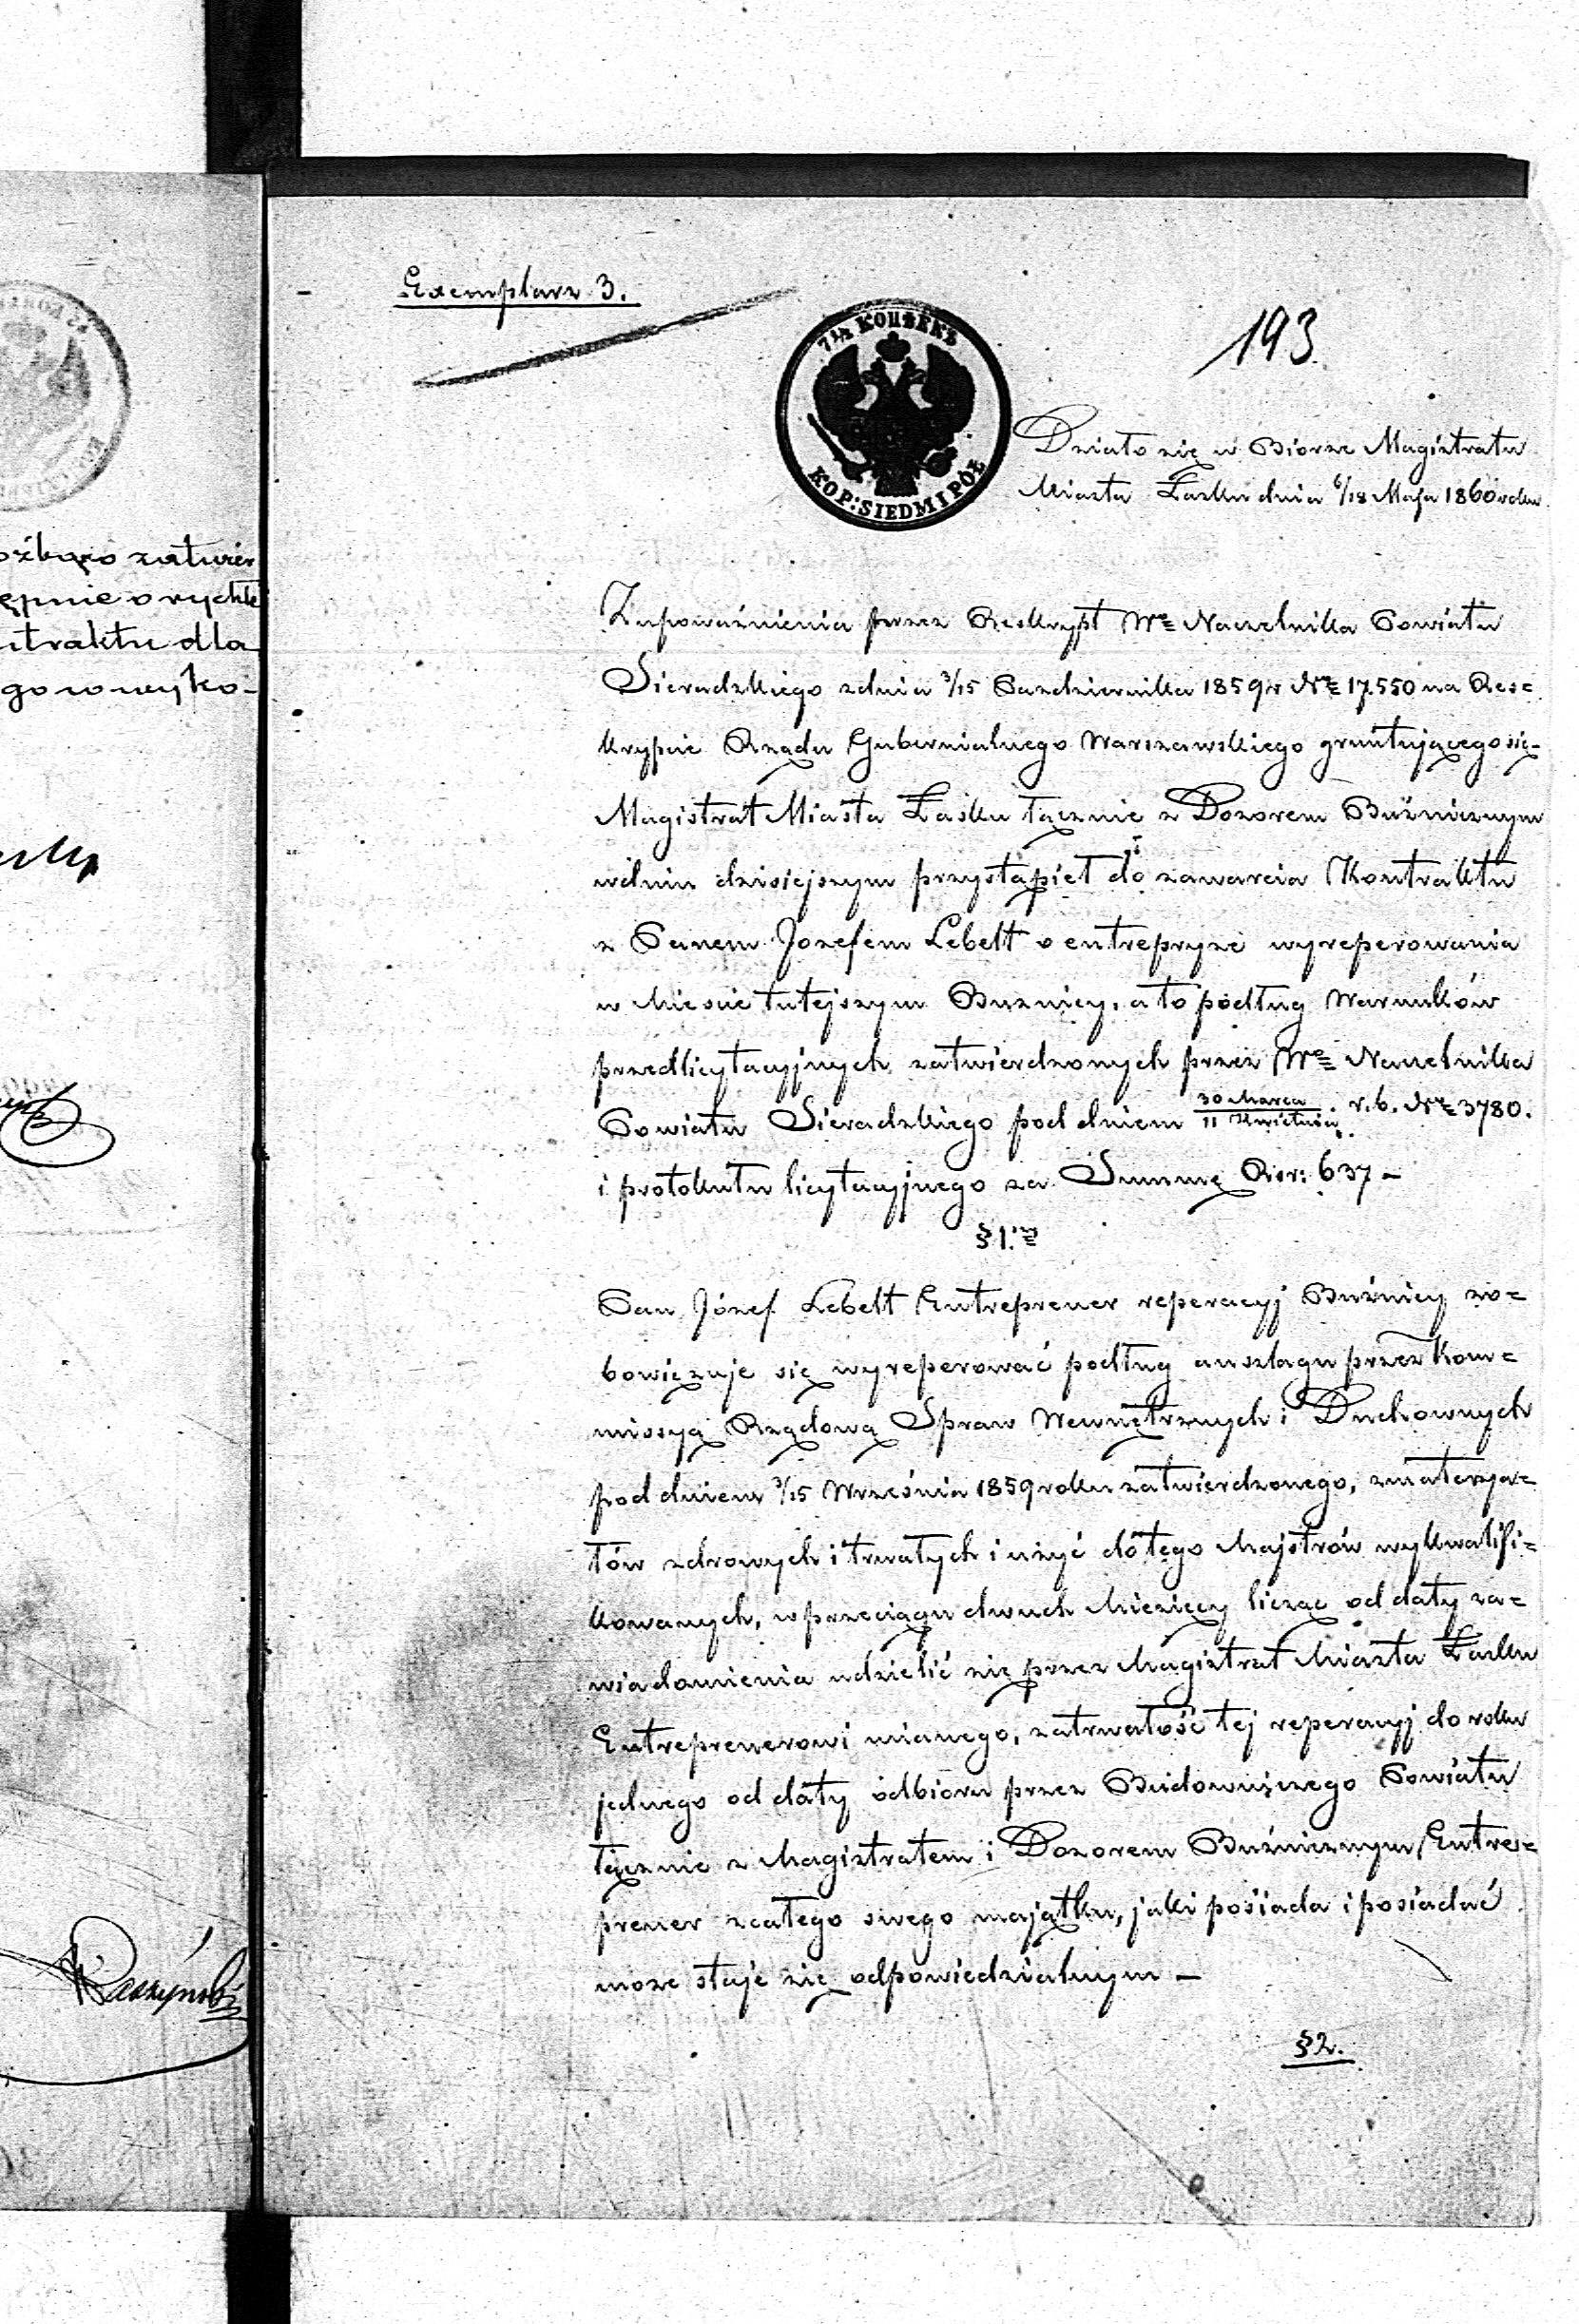 Exemplarz 3.
193
7 1/2 КОПѢЕКЪ
KOP: SIEDM I PÓŁ
Działo się w Biorze Magistratu
Miasta Łasku dnia 6/18 Maja 1860 roku
ępnie o rychłe
ntraktu dla
Zupoważnienia przez Reskrypt Wo Naczelnika Powiatu
Sieradzkiego zdnia 3/15 Pazdziernika 1859 r No 17.550 na Res=
krypcie Rządu Gubernialnego Warszawskiego gruntującego się
Magistrat Miasta Łasku łącznie z Dozorem Bużnicznym
wdniu dzisiejszym przystąpieł do zawarcia Kontraktu
z Panem Jozefem Lebelt o entrepryze wyreperowania
w Miescie tutejszym Buznicy, a to podług Warunków
przedlicytacyjnych zatwierdzonych przez Wo Naczelnika
Powiatu Sieradzkiego pod dniem 30 Marca / 11 Kwietnia r. b. No 3780.
i protokułu licytacyjnego za Summę Rsr: 637 –
§ 1.
Pan Józef Lebelt Entreprener reperacyj Bużnicy zo=
bowięzuje się wyreperować podług anszlagu przez Kom=
missyą Rządową Spraw Wewnętrznych i Duchownych
pod dniem 3/15 Września 1859 roku zatwierdzonego, zmaterya=
łów zdrowych i trwałych i użyć do tego Majstrów wykwalifi=
kowanych, w przeciągu dwuch Miesięcy licząc od daty za=
wiadomienia udzielić się przez Magistrat Miasta Łasku
Entreprenerowi mianego, zatrwałość tej reperacyj do roku
jednego od daty odbioru przez Budowniczego Powiatu
łącznie z Magistratem i Dozorem Bużnicznym Entre=
prener zcałego swego majątku, jaki posiada i posiadać
może staje się odpowiedzialnym –
§ 2.